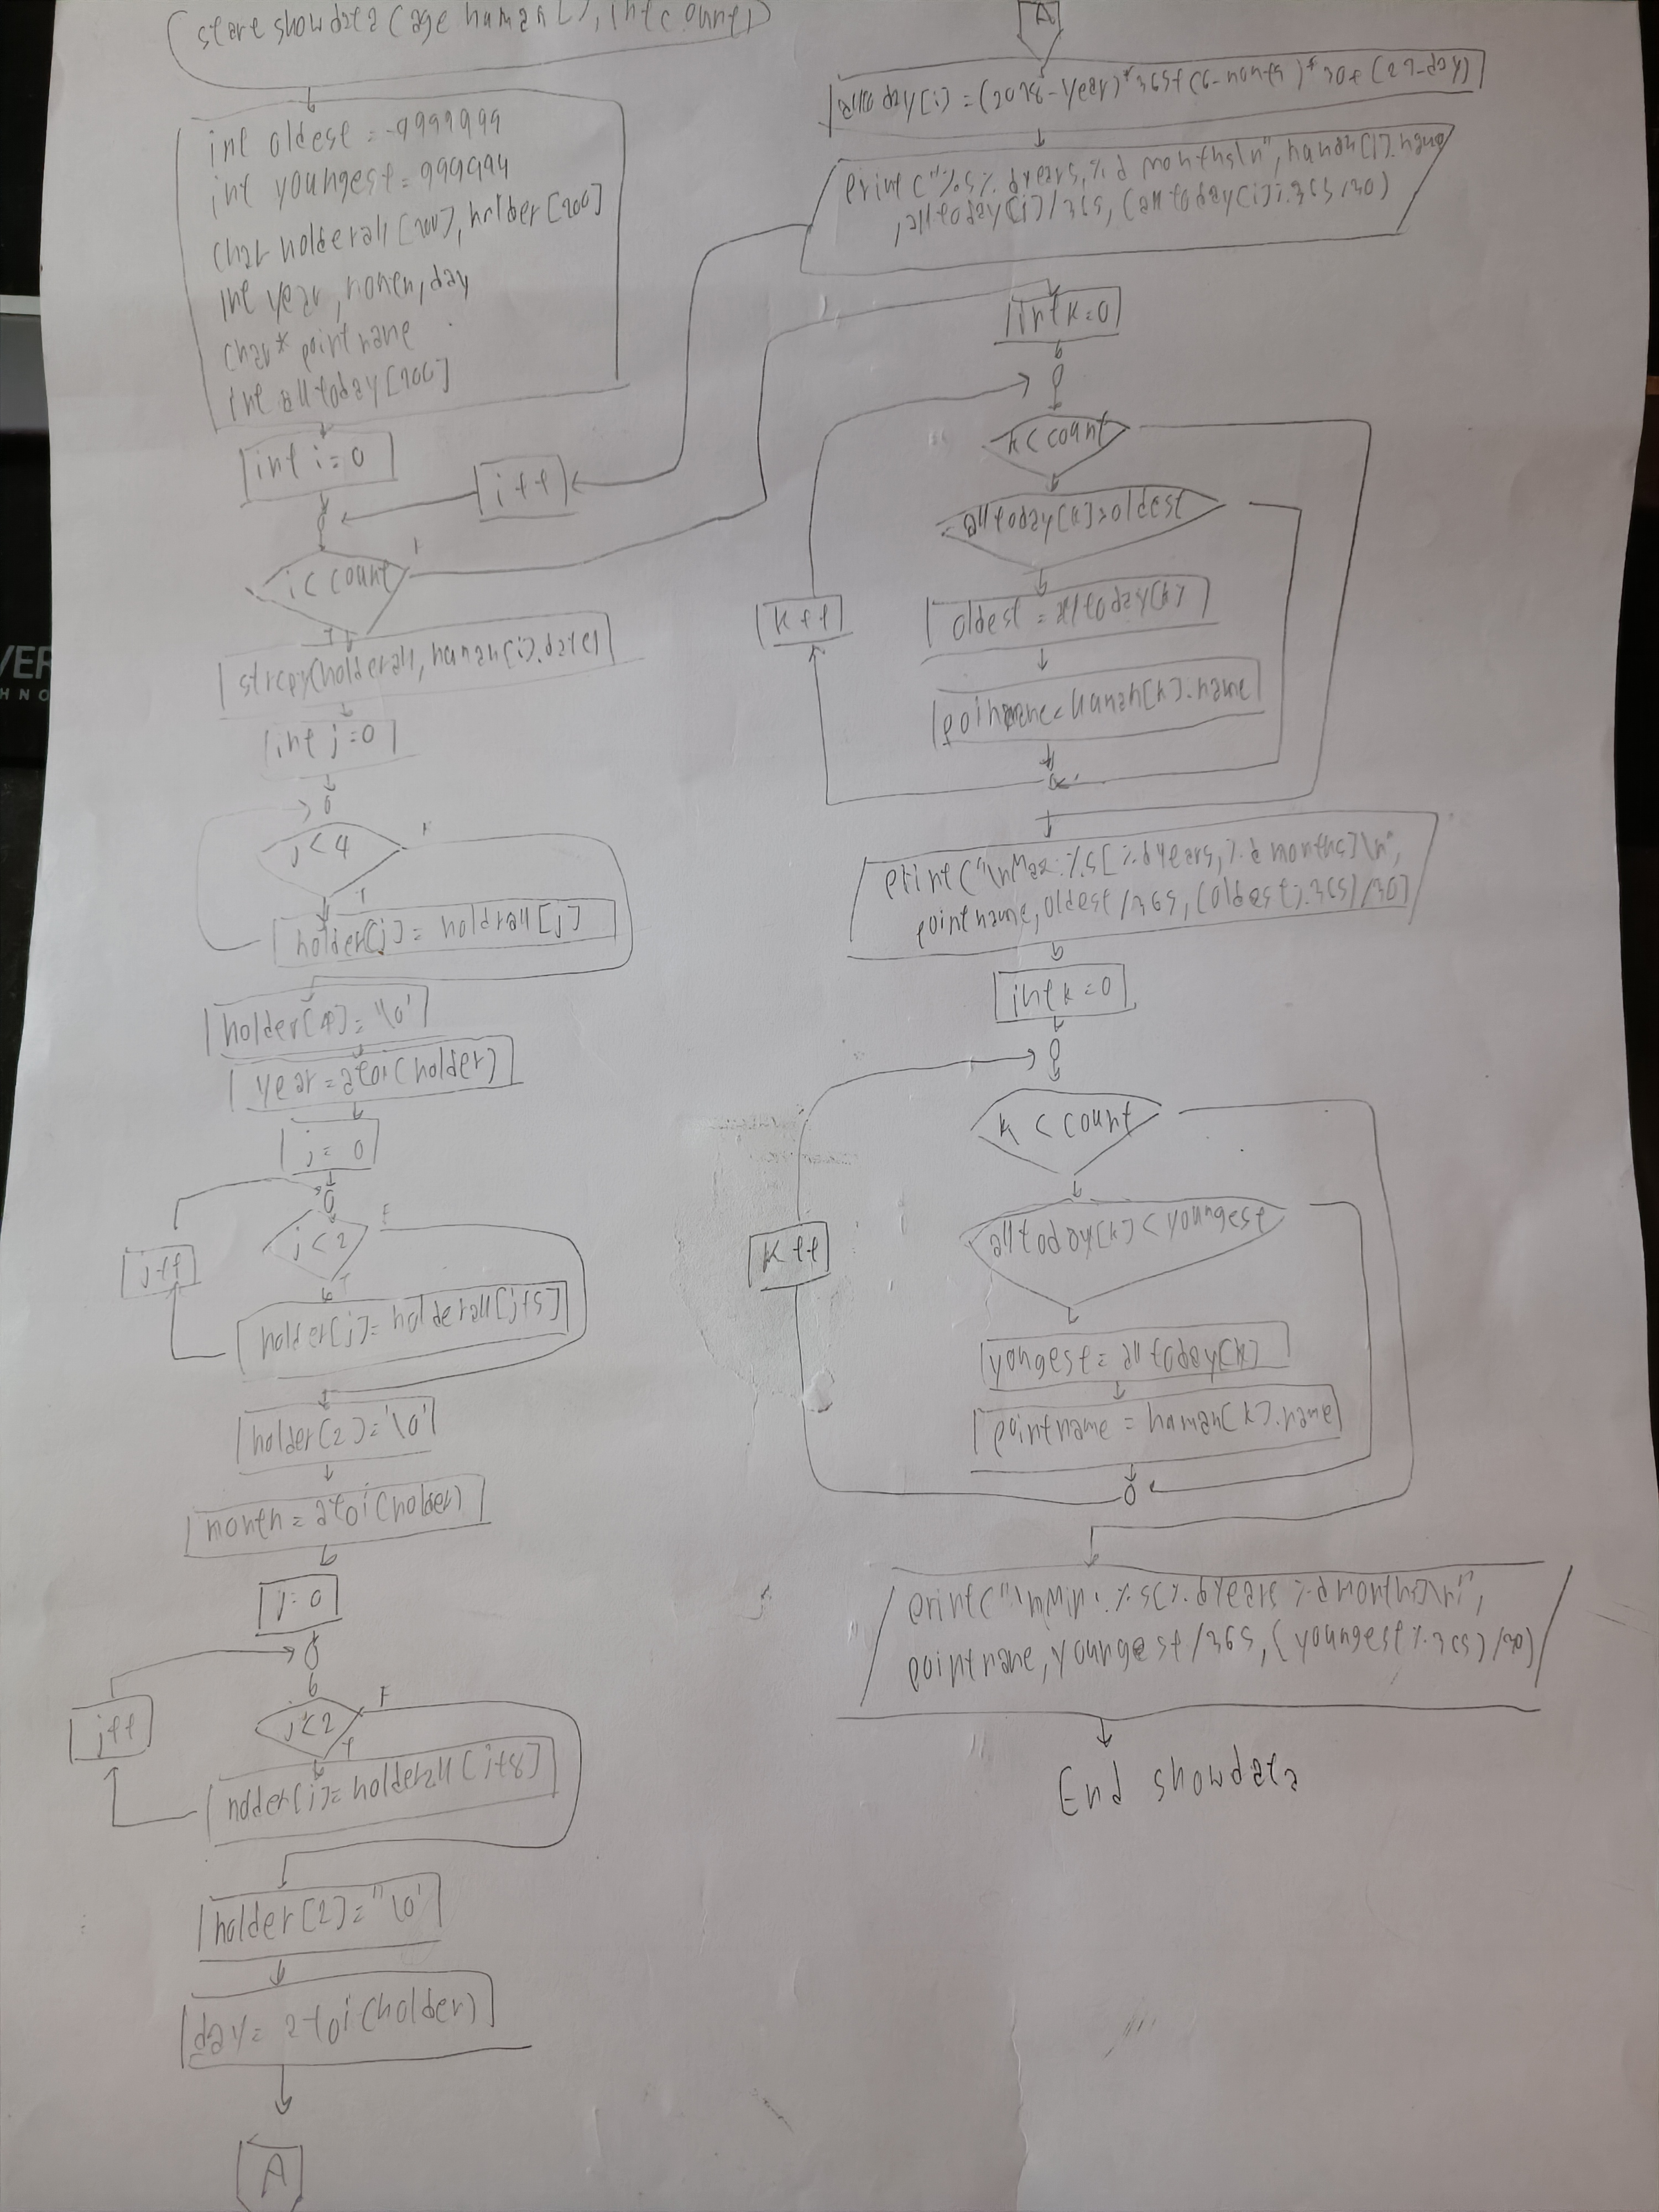 start showdata (age human[], int count)
int oldest = -9999999
int youngest = 999999
char holderall [200], holder [200]
int year, month, day
char* pointname
int alltoday [200]
int i = 0
i++
i < count
T
strcpy(holderall, human[i].date)
int j = 0
j < 4
F
T
holder[j] = holdrall [j]
holder[4] = '\0'
year = atoi(holder)
j = 0
j < 2
F
T
j++
holder[j] = holderall [j+5]
holder[2] = '\0'
month = atoi(holder)
j = 0
j < 2
F
T
j++
holder[j] = holderall [j+8]
holder [2] = "\0'
day = atoi(holder)
A
A
alltoday[i] = (2028-year)*365+(6-month)*30+(27-day)
print ("%s %d years, %d months\n", human[i].name
, alltoday[i]/365, (alltoday[i]%365/30)
int k = 0
k < count
alltoday[k] > oldest
k++
oldest = alltoday[k]
pointname = human[k].name
print ("\nMax: %s [%d years, %d months]\n",
pointname, oldest /365, (oldest%365)/30)
int k = 0
k < count
alltoday[k] < youngest
k++
yongest = alltoday[k]
pointname = human[k].name
print ("\nMin: %s[%d years %d months]\n",
pointname, youngest /365, (youngest %365) /30)
End showdata
VER
HNO